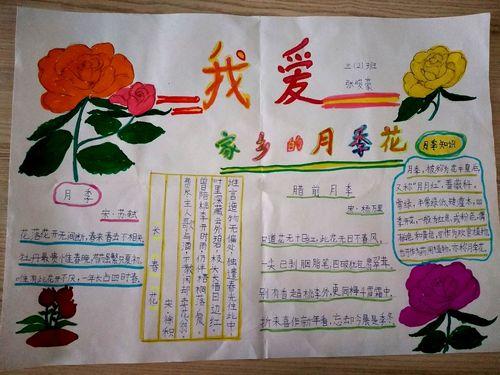 我爱
三(2)班
张峻豪
家乡的月季花
月季
宋·苏轼
花落花开无间断,春来春去不相关
牡丹最贵惟春晚,芍药虽繁只夏初
惟有此花开不厌,一年长占四时春
长春花
宋·徐积
谁言造物无偏处,独遣春光住此中
叶里深藏云外碧,枝头长借日边红
曾陪桃李开时雨,仍伴梧桐落叶风
费尽主人歌与酒,不教闲却卖花翁
腊前月季
宋·杨万里
只道花无十日红,此花无日不春风
一尖已剥胭脂笔,四破犹包翡翠茸
别有香超桃李外,更同梅斗雪霜中
折来喜作新年看,忘却今晨是季冬
月季知识
月季,被称为花中皇后,
又称"月月红",蔷薇科。
常绿、半常绿低矮灌木,四
季开花,一般为红色,或粉色、偶
有白色和黄色,可作为观赏植物,
也可作为药用植物,亦称月季花。